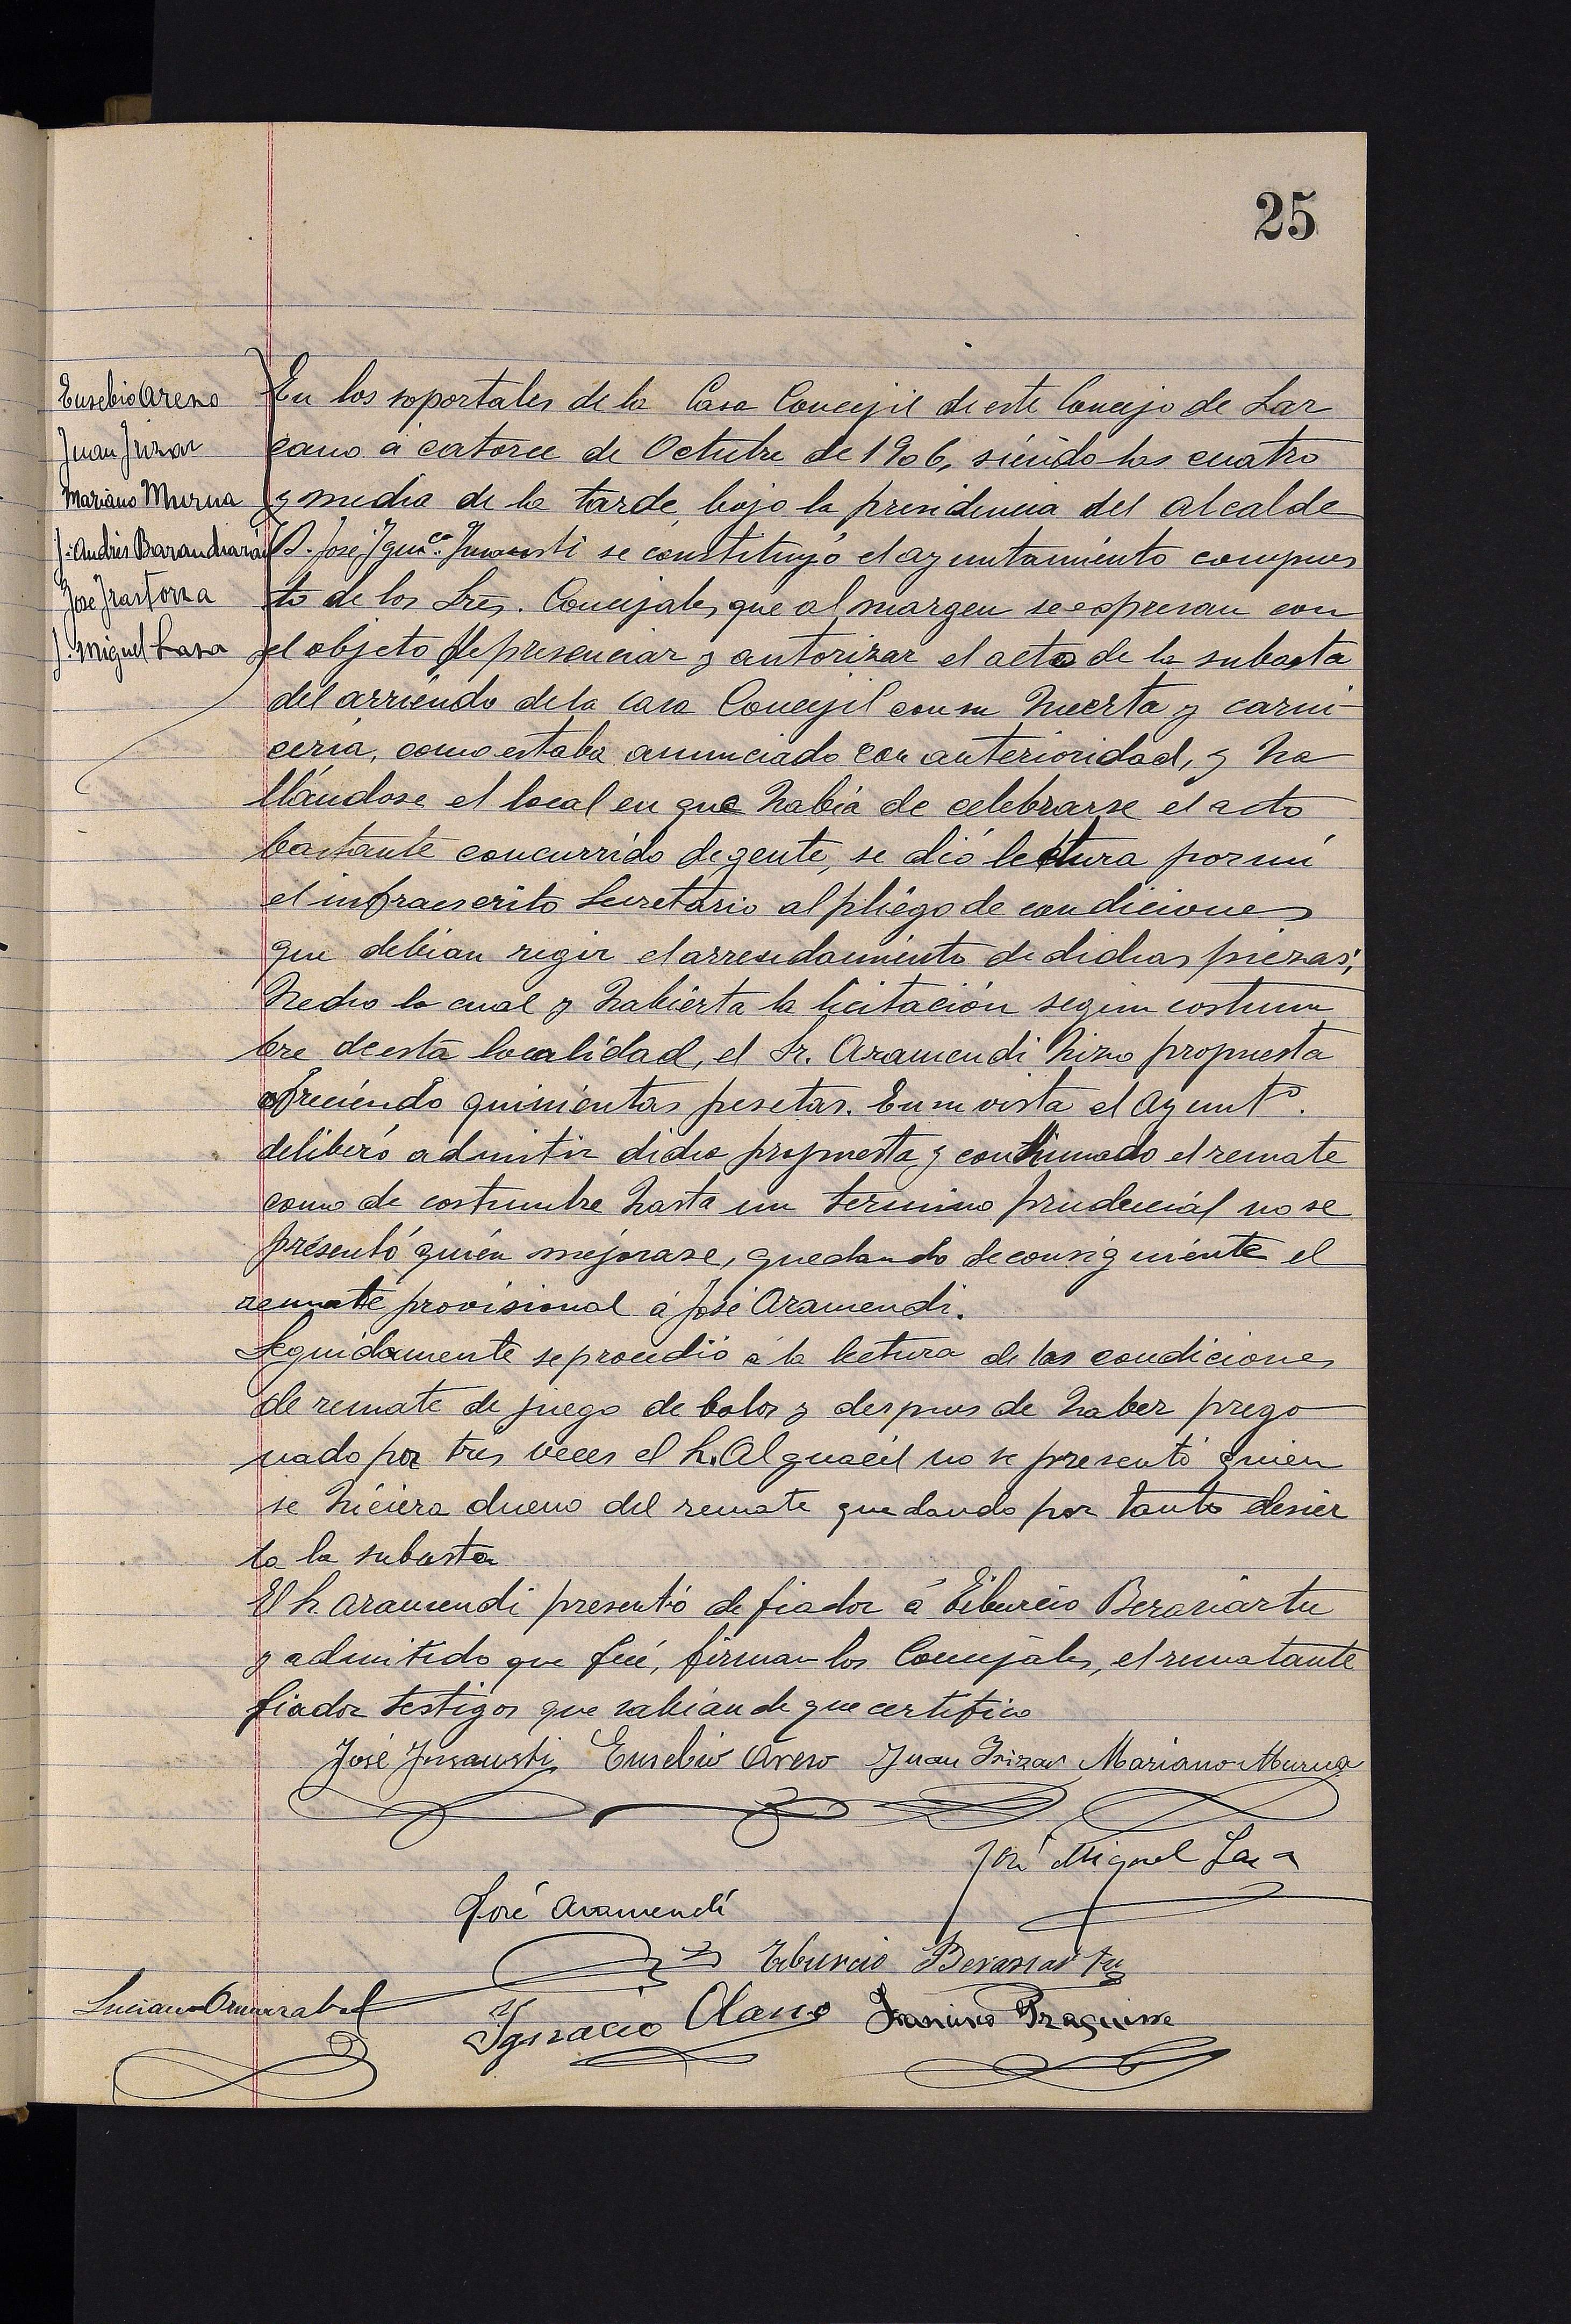 25
Eusebio Areso
Juan Irizar
Mariano Murua
J. Andrés Barandiarán
José Irastorza
J. Miguel Lasa
En los soportales de la Casa Concejil de este Concejo de Laz
cano á catorce de Octubre de 1906, siendo las cuatro
y media de la tarde, bajo la presidencia del alcalde
D. José Ignco. Insausti se constituyó el ayuntamiento compues
to de los Sres. Concejales que al margen se espresan con
el objeto de presenciar y autorizar el acto de la subasta
del arriendo de la casa Concejil con su huerta y carni
cería, como estaba anunciado con anterioridad, y ha
llándose el local en que había de celebrarse el acto
bastante concurrido de gente, se dió lectura por mí
el infraescrito Secretario al pliego de condiciones
que debían regir el arrendamiento de dichas piezas;
hecho lo cual y habierta la licitación segun costum
bre de esta localidad, el Sr. Aramendi hizo propuesta
ofreciendo quinientas pesetas. En su vista el Ayuntº.
deliberó admitir dicha propuesta y continuado el remate
como de costumbre hasta un termino prudencial no se
presentó quién mejorase, quedando de consiguiente el
remate provisional á José Aramendi.
Seguidamente se procedió á la lectura de las condiciones
de remate de juego de bolos y despues de haber prego
nado por tres veces el Sr. Alguacil no se presentó quien
se hiciera dueno del remate quedando por tanto desier
ta la subasta
El Sr Aramendi presentó de fiador á Tiburcio Berasiartu
y admitido que fué, firman los Concejales, el rematante
fiador testigos que sabían de que certifico
José Insausti Eusebio Areso Juan Irizar Mariano Murua
José Miguel Lasa
José Aramendi
Tiburcio Berasiartu
Luciano
Ignacio Olano Francisco